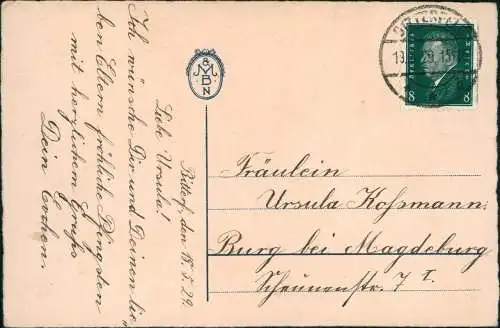 Bitterf, den 18.5.29.
Liebe Ursula!
Ich wünsche Dir und Deinen lie-
ben Eltern fröhliche Pfingsten
mit herzlichem Gruß
Dein Evchen.
M & B N
29.15
8 8
Fräulein
Ursula Koßmann.
Burg bei Magdeburg
Scheunenstr. 7 I.